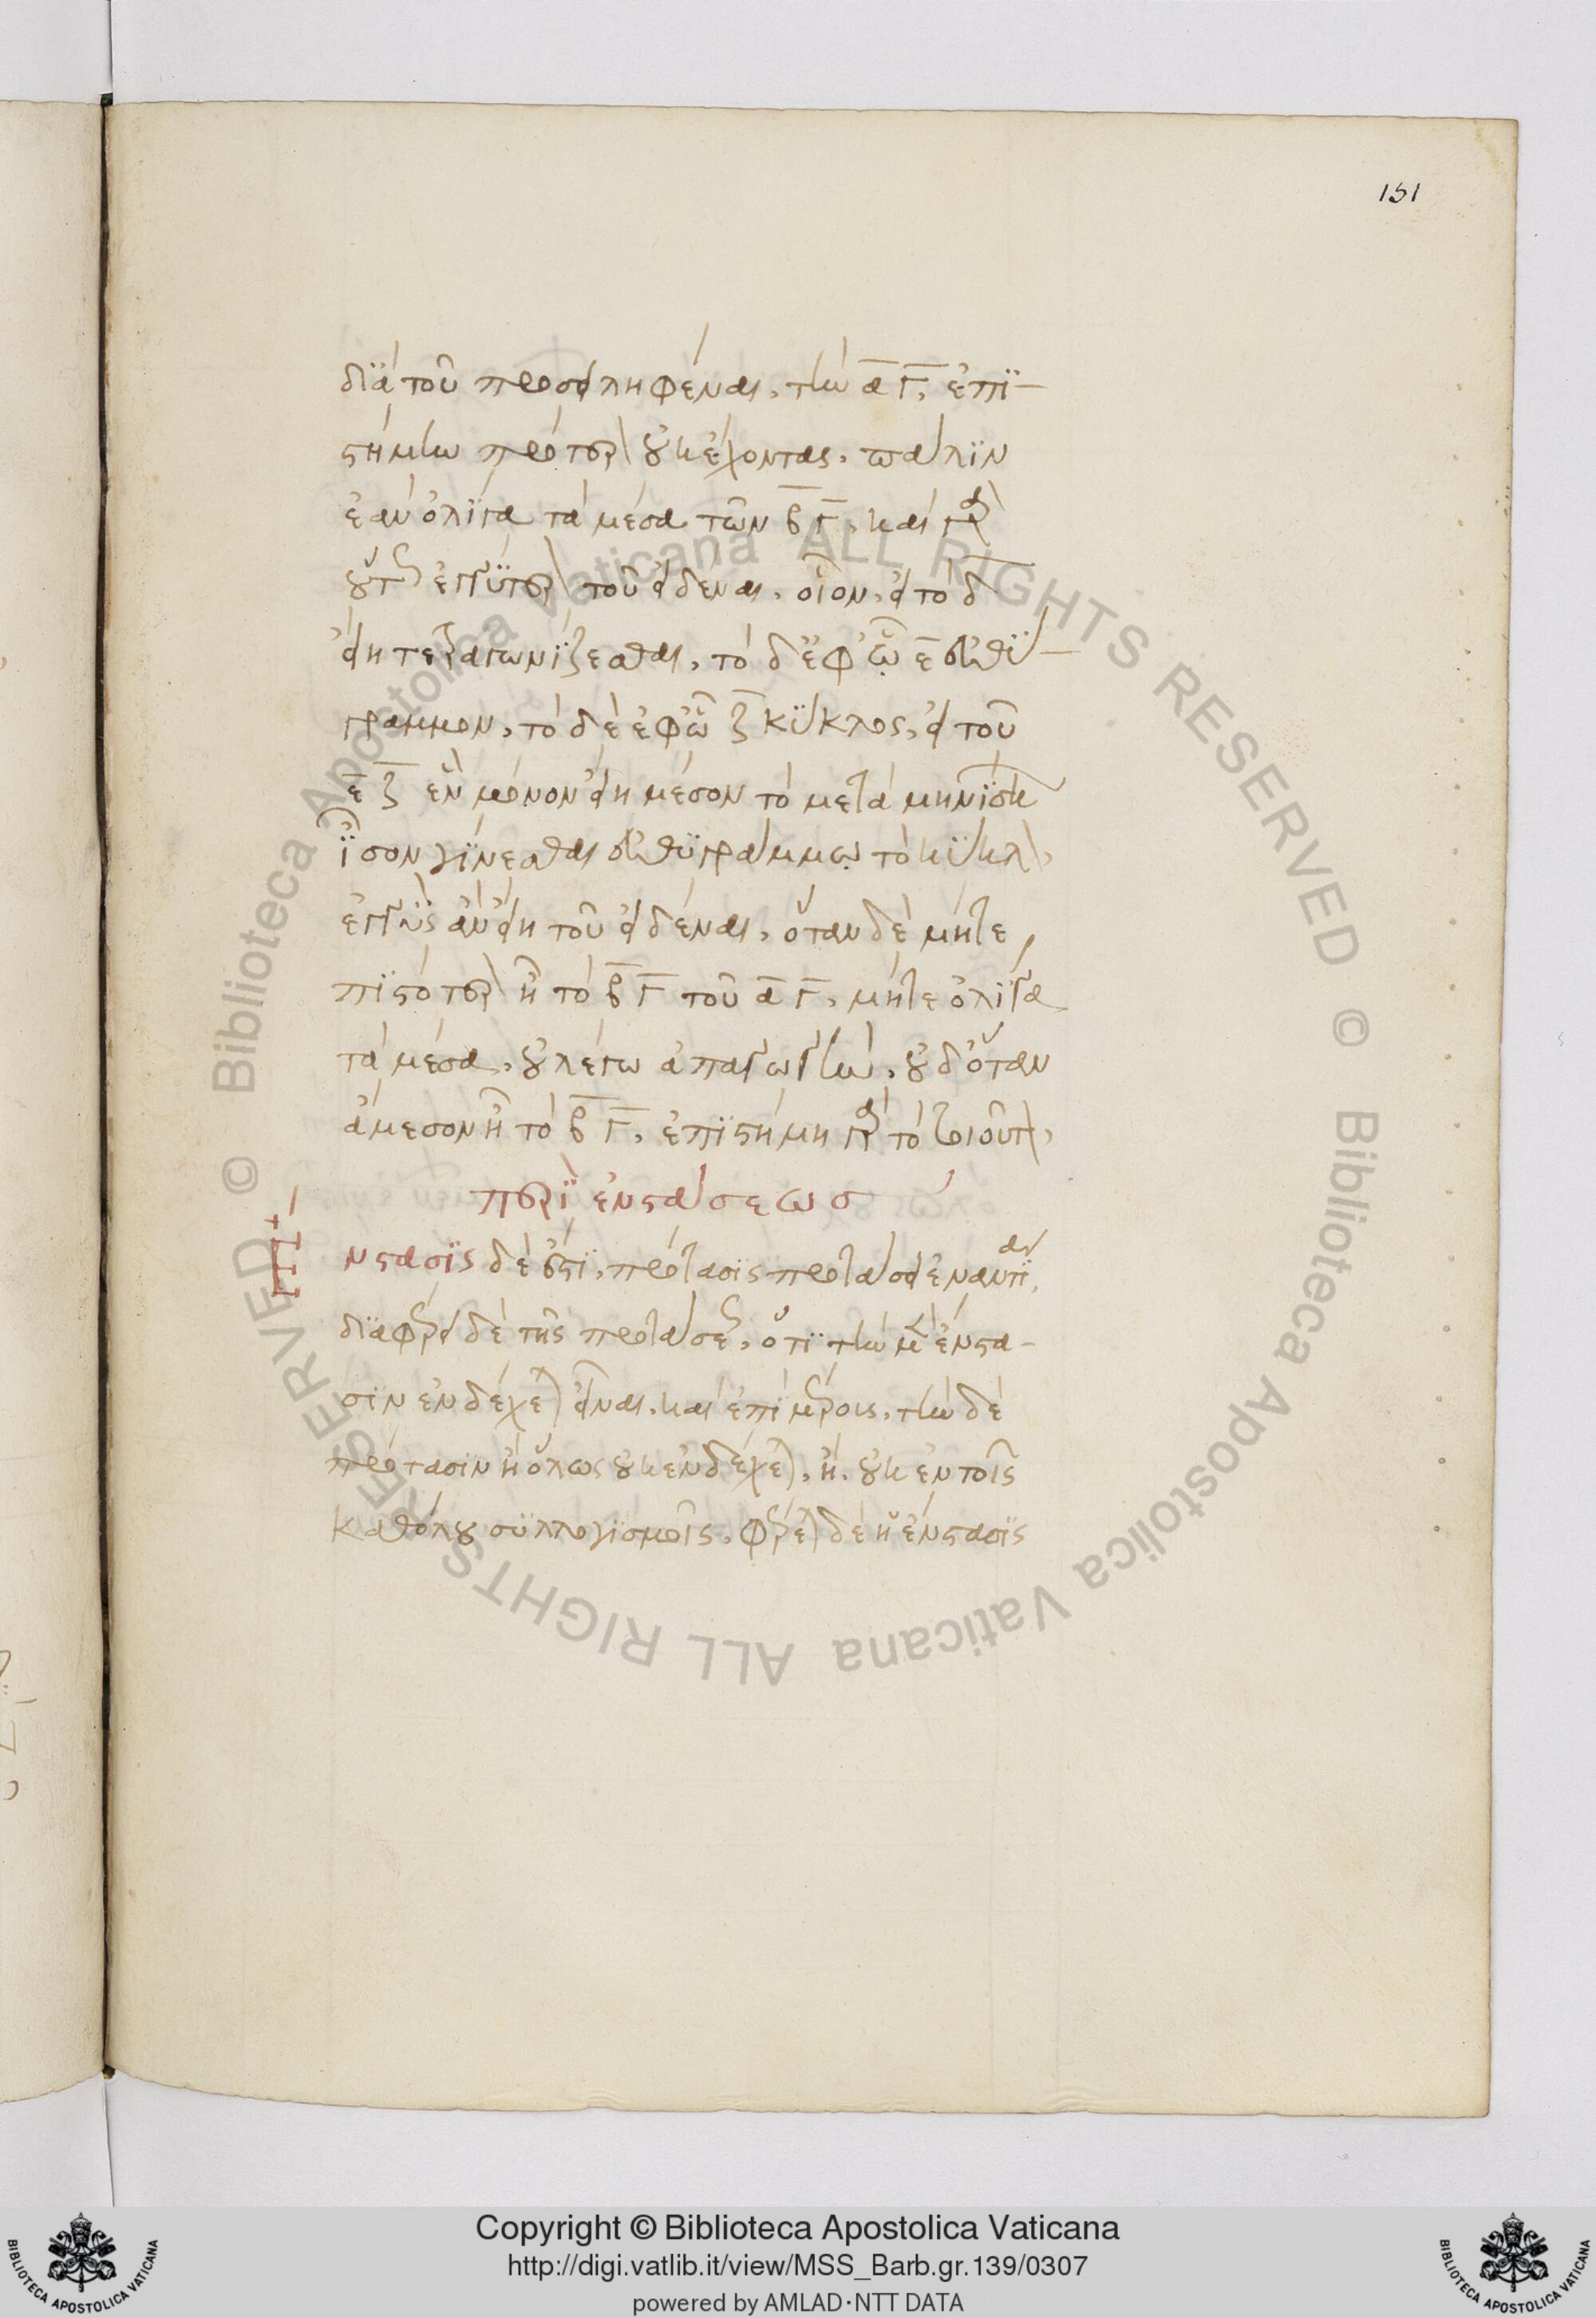 151
διὰ τοῦ προσειληφέναι, τὴν α γ, ἐπι-
στήμην πρότερον οὐκ ἔχοντας. πάλιν
ἐὰν ὀλίγα τὰ μέσα τῶν β γ, καὶ γὰρ
οὕτως ἐγγύτερον τοῦ εἰδέναι. οἷον, εἰ τὸ δ
εἴη τετραγωνίζεσθαι, τὸ δ ἐφ ᾧ ε εὐθύ-
γραμμον, τὸ δὲ ἐφ ᾧ ζ κύκλος, εἰ τοῦ
ε ζ ἓν μόνον εἴη μέσον τὸ μετὰ μηνίσκων
ἴσον γίνεσθαι εὐθυγράμμῳ τὸν κύκλον,
ἐγγὺς ἂν εἴη τοῦ εἰδέναι. ὅταν δὲ μήτε
πιστότερον ᾖ τὸ β γ τοῦ α γ, μήτε ὀλίγα
τὰ μέσα, οὐ λέγω ἀπαγωγήν, οὐδ ὅταν
ἄμεσον ᾖ τὸ β γ, ἐπιστήμη γὰρ τὸ τοιοῦτον,
περὶ ἐνστάσεως
Ἔνστασις δέ ἐστι, πρότασις προτάσει ἐναντία,
διαφέρει δὲ τῆς προτάσεως, ὅτι τὴν μὲν ἔνστα-
σιν ἐνδέχεται εἶναι. καὶ ἐπὶ μέρους, τὴν δὲ
πρότασιν ἢ ὅλως οὐκ ἐνδέχεται, ἢ. οὐκ ἐν τοῖς
καθόλου συλλογισμοῖς. φέρεται δὲ ἡ ἔνστασις
© Biblioteca Apostolica Vaticana ALL RIGHTS RESERVED © Biblioteca Apostolica Vaticana ALL RIGHTS RESERVED
Copyright © Biblioteca Apostolica Vaticana
http://digi.vatlib.it/view/MSS_Barb.gr.139/0307
powered by AMLAD·NTT DATA
BIBLIOTECA APOSTOLICA VATICANA
BIBLIOTECA APOSTOLICA VATICANA